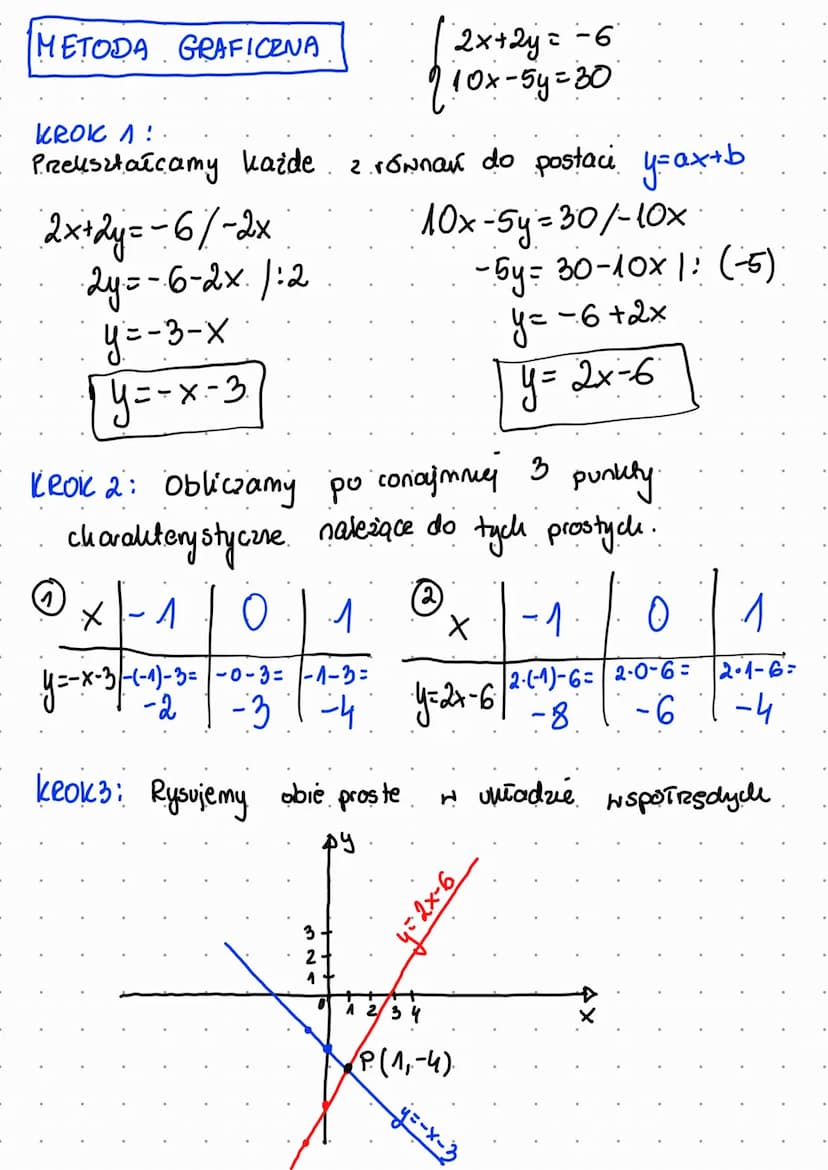 METODA GRAFICZNA
2x+2y=-6
10x-5y=30
KROK 1:
Przekształcamy każde z równań do postaci y=ax+b
2x+2y=-6/-2x
2y=-6-2x |:2
y=-3-x
y=-x-3
10x-5y=30/-10x
-5y=30-10x |:(-5)
y=-6+2x
y=2x-6
KROK 2: Obliczamy po conajmniej 3 punkty
charakterystyczne należące do tych prostych.
① x -1 0 1
y=-x-3 -(-1)-3= -0-3= -1-3=
-2 -3 -4
② x -1 0 1
y=2x-6 2·(-1)-6= 2·0-6= 2·1-6=
-8 -6 -4
KROK3: Rysujemy obie proste w układzie współrzędnych
y
y=2x-6
3
2
1
0 1 2 3 4
x
P(1,-4)
y=-x-3